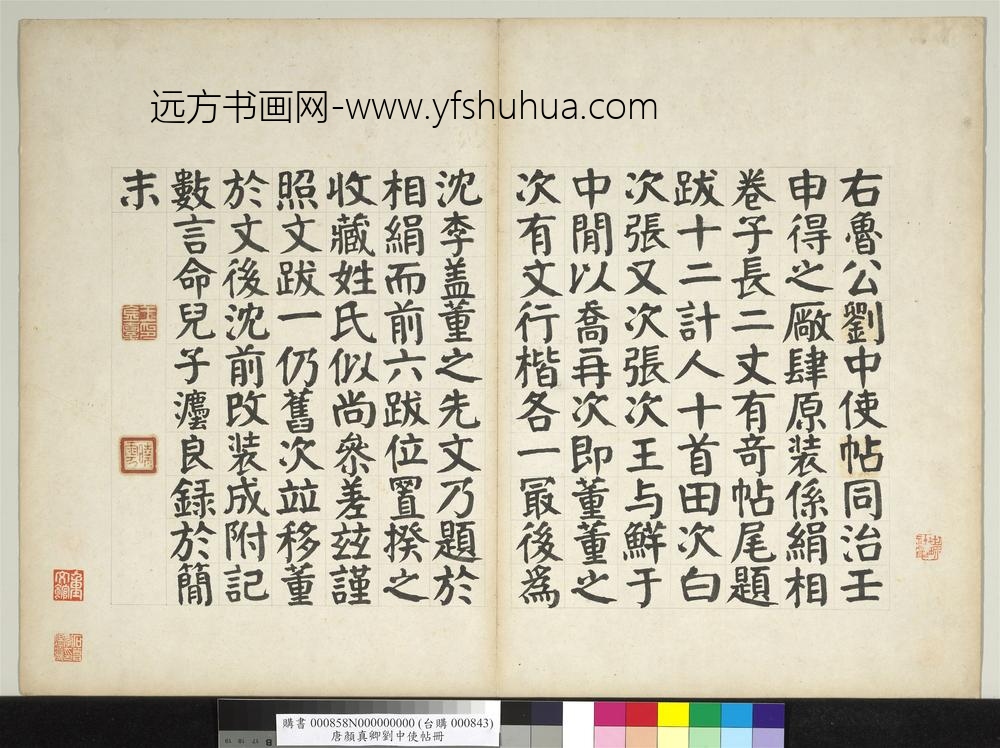 远方书画网-www.yfshuhua.com
右魯公劉中使帖同治壬
申得之廠肆原装係絹相
卷子長二丈有奇帖尾題
跋十二計人十首田次白
次張又次張次王与鮮于
中間以喬再次即董董之
次有文行楷各一冣後為
沈李盖董之先文乃題於
相絹而前六跋位置揆之
收藏姓氏似尚叅差兹謹
照文跋一仍舊次竝移董
於文後沈前改装成附記
數言命兒子瀍良録於簡
末
購書 000858N000000000 (台購 000843)
唐顏真卿劉中使帖冊